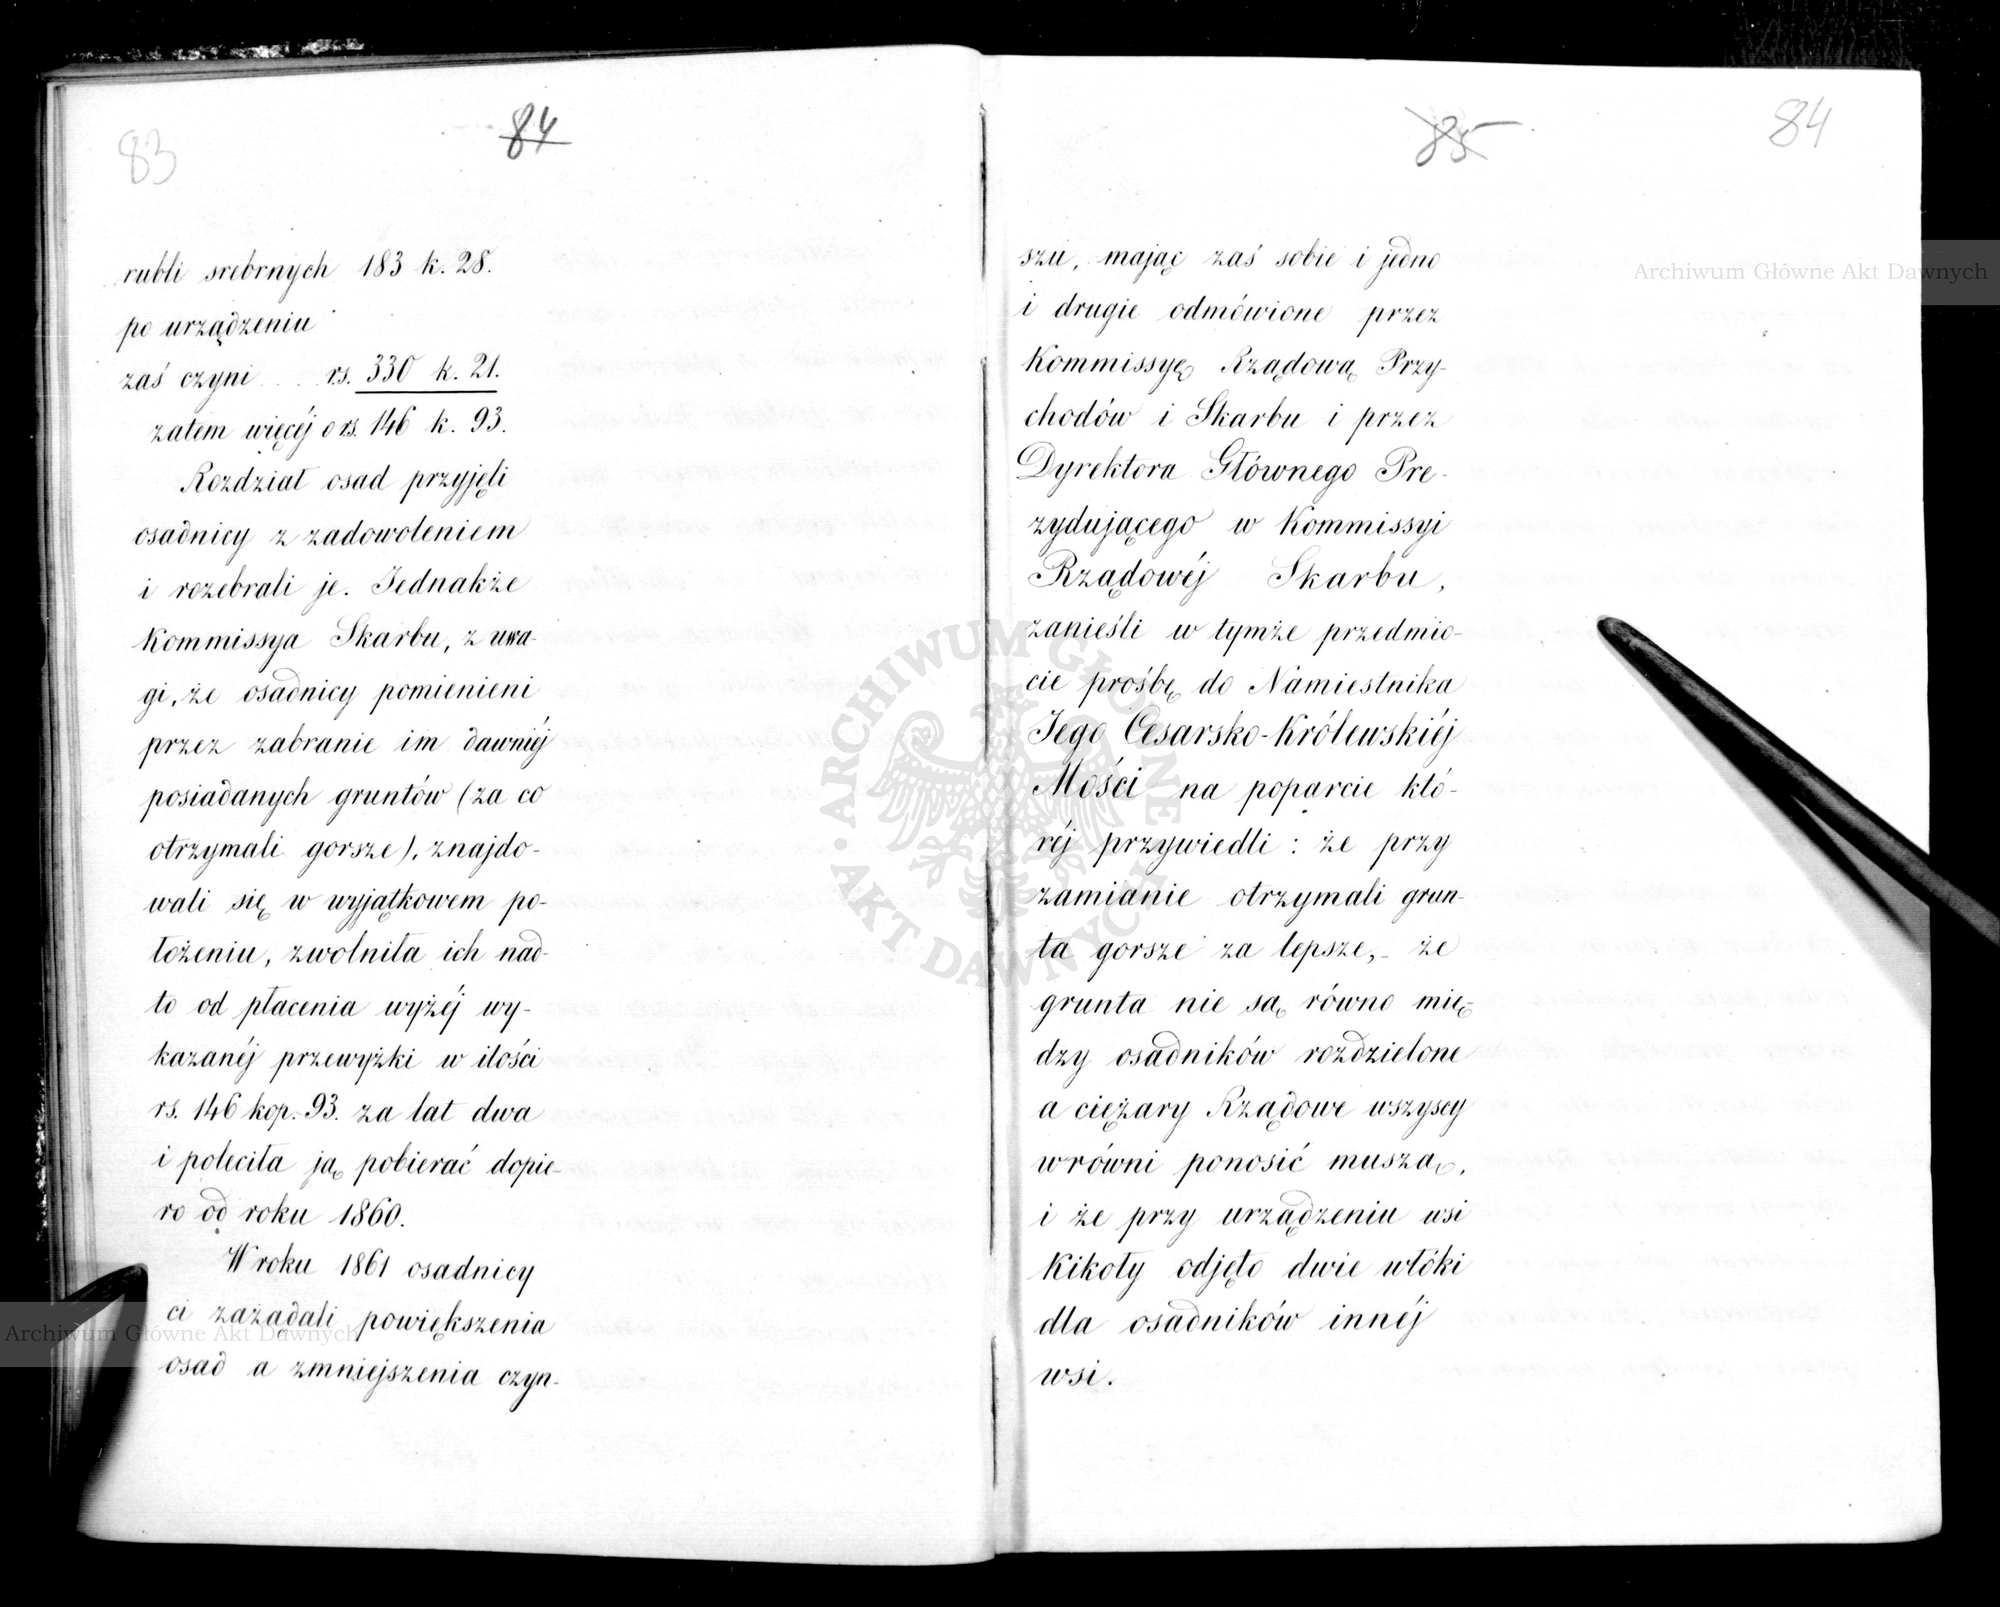 83
84
rubli srebrnych 183 k. 28.
po urządzeniu
zaś czyni .... rs. 330 k. 21.
zatem więcéj o rs. 146 k. 93.
Rozdział osad przyjęli
osadnicy z zadowoleniem
i rozebrali je. Jednakże
Kommissya Skarbu, z uwa-
gi, że osadnicy pomienieni
przez zabranie im dawniéj
posiadanych gruntów (za co
otrzymali gorsze), znajdo-
wali się w wyjątkowem po-
łożeniu, zwolniła ich nad-
to od płacenia wyżéj wy-
kazanéj przewyżki w ilości
rs. 146 kop. 93. za lat dwa
i poleciła ją pobierać dopie-
ro od roku 1860.
W roku 1861 osadnicy
ci zażądali powiększenia
osad a zmniejszenia czyn-
85
84
szu, mając zaś sobie i jedno
i drugie odmówione przez
Kommissyę Rządową Przy-
chodów i Skarbu i przez
Dyrektora Głównego Pre-
zydującego w Kommissyi
Rządowéj Skarbu,
zanieśli w tymże przedmio-
cie prośbę do Namiestnika
Jego Cesarsko-Królewskiéj
Mości na poparcie któ-
réj przywiedli: że przy
zamianie otrzymali grun-
ta gorsze za lepsze,- że
grunta nie są równo mię-
dzy osadników rozdzielone
a ciężary Rządowe wszyscy
wrówni ponosić muszą,
i że przy urządzeniu wsi
Kikoły odjęto dwie włóki
dla osadników innéj
wsi.
Archiwum Główne Akt Dawnych
Archiwum Główne Akt Dawnych
ARCHIWUM GŁÓWNE AKT DAWNYCH